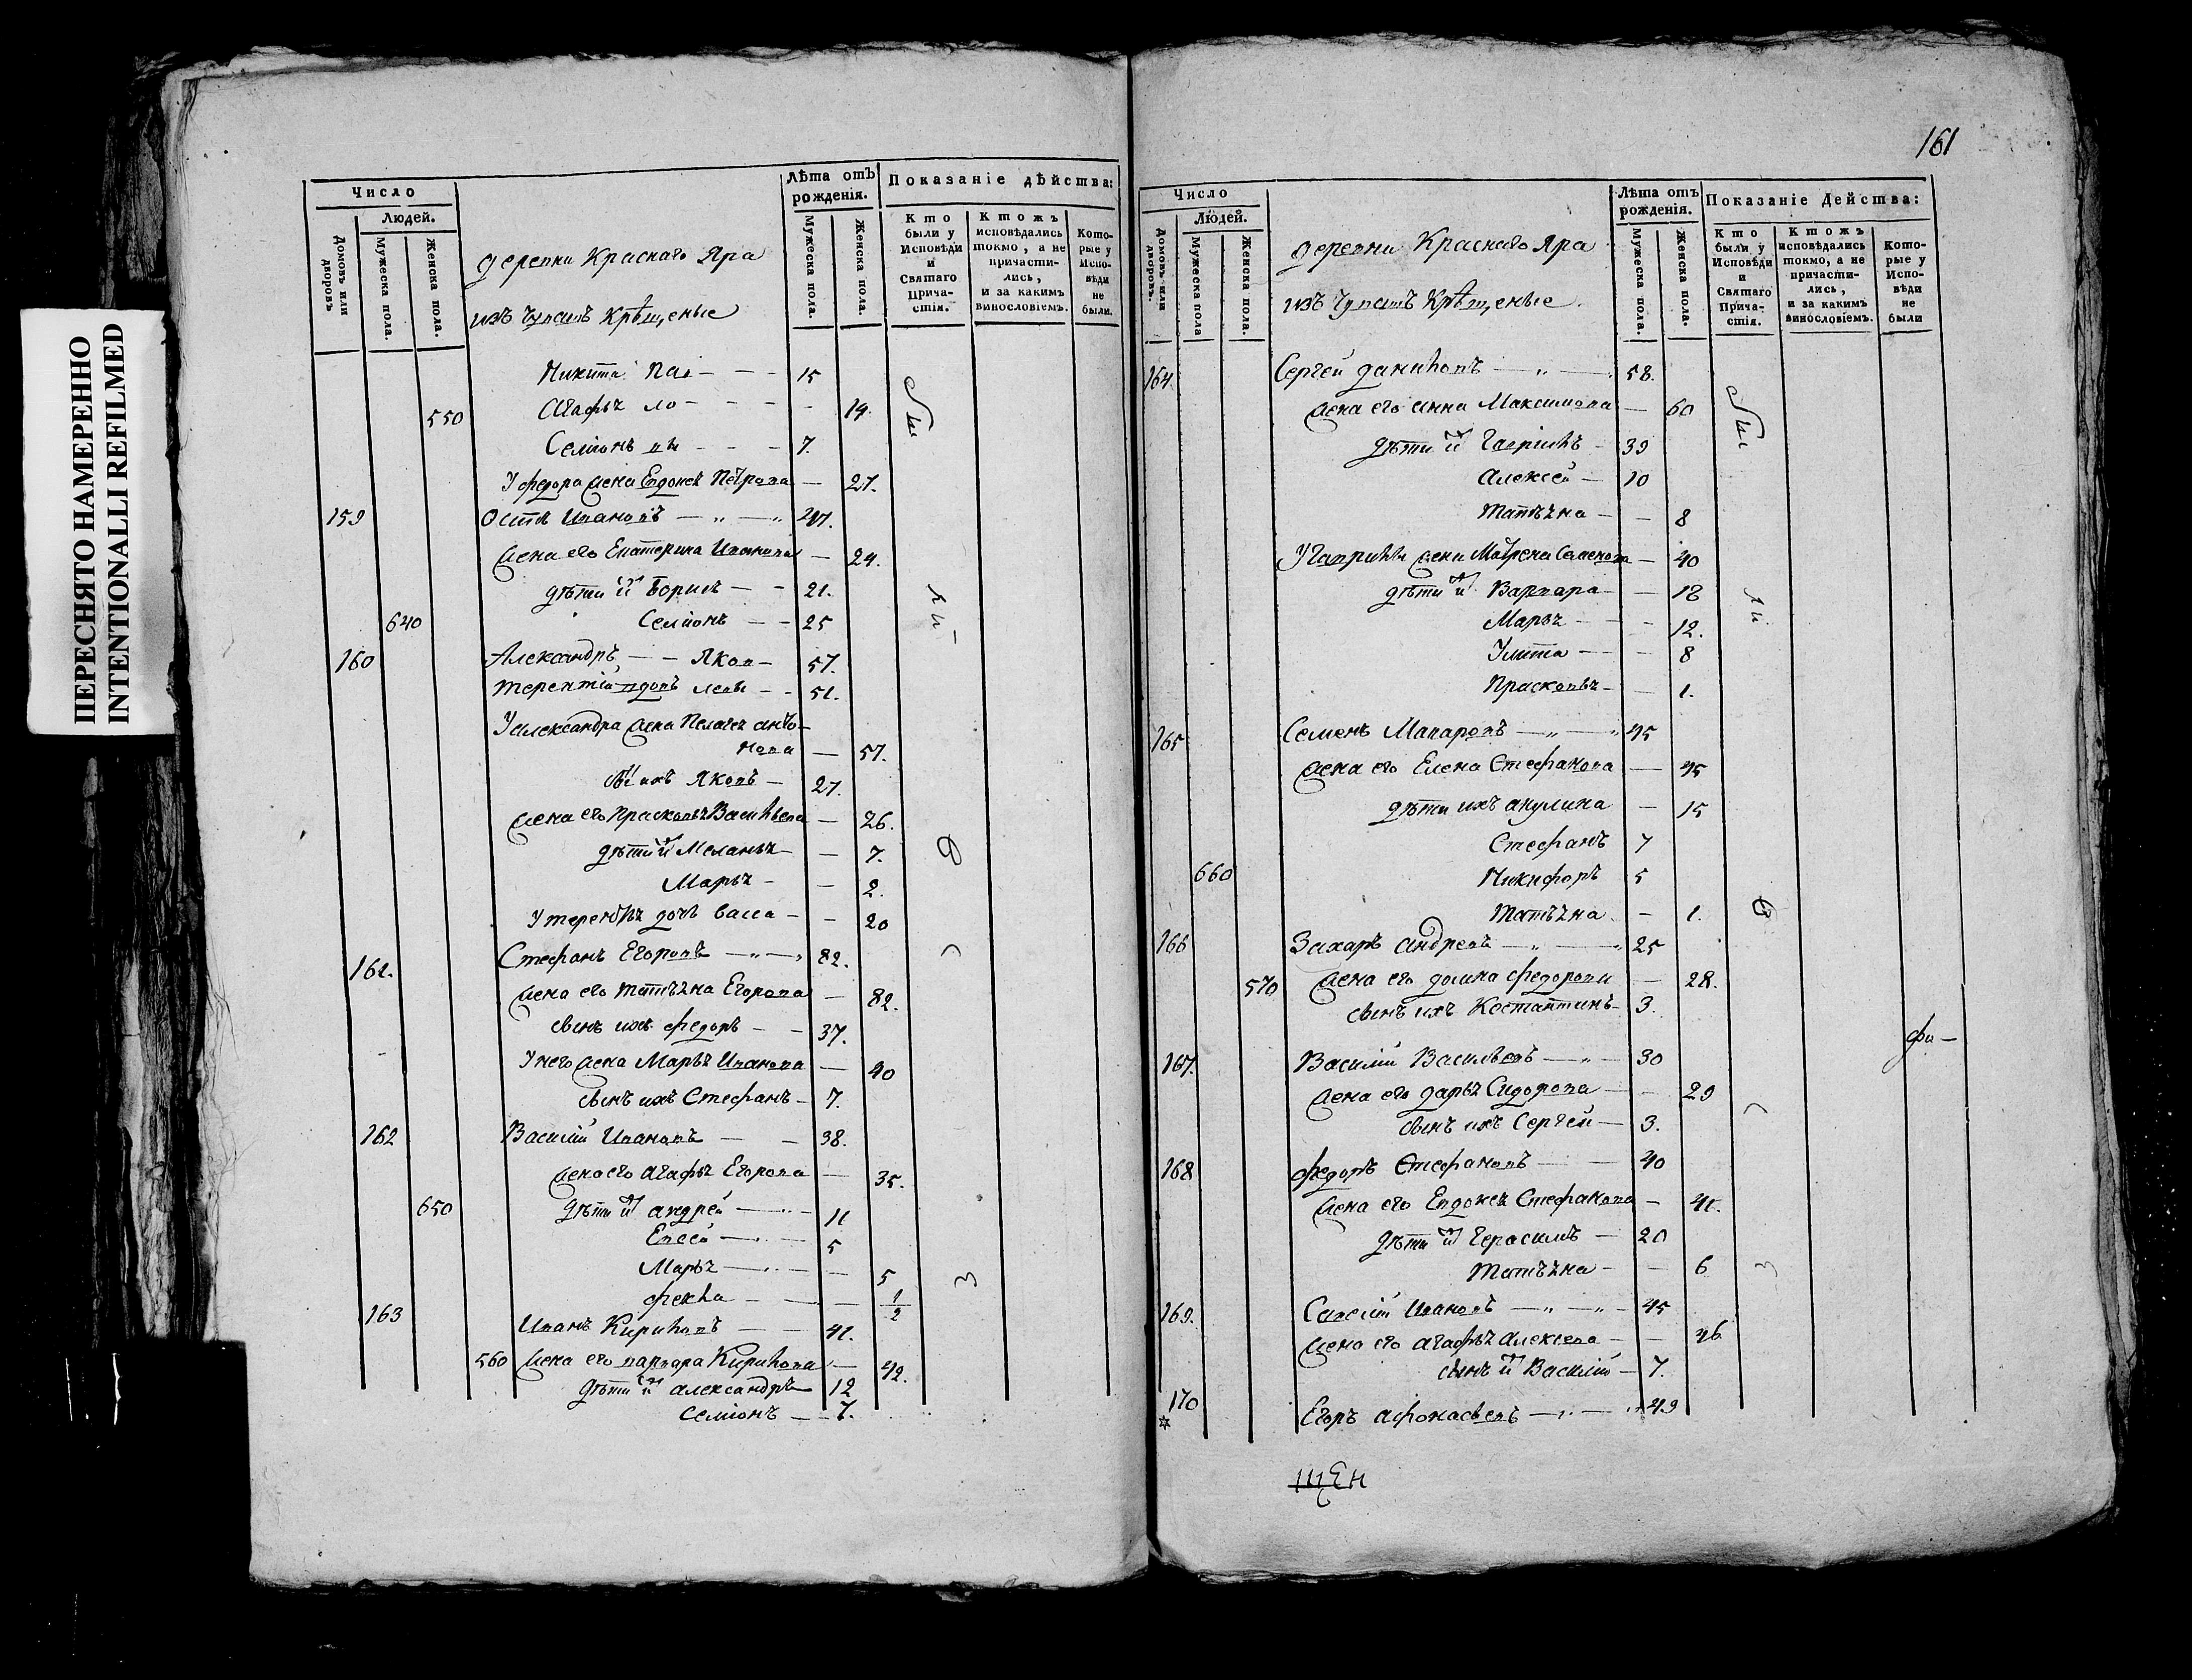 ПЕРЕСНЯТО НАМЕРЕННО
INTENTIONALLI REFILMED
Число
Людей.
Домовъ или дворовъ
Мужеска пола.
Женска пола.
деревни Краснаго Яра
изъ чувашъ Крѣщеные
Лѣта отъ рожденія.
Мужеска пола.
Женска пола.
Показаніе дѣйства:
Кто были у Исповѣди и Святаго Прича-стія.
Ктожъ исповѣдались токмо, а не причасти-лись, и за какимъ винословіемъ.
Кото-рые у Испо-вѣди не были.
Никита 15
550 Агафья 19.
Семіонъ 7.
У федора жена Евдокея Петрова — 27.
159 Иванов —„—„
жена его Екатерина Иванова — 24.
дѣти Борисъ — - 21.
640 Семіонъ — - 25
160 Александръ — - Яков - 57.
терентій 51.
У александра жена Пелагея анто-
нова — 57.
Яковъ — 27.
жена его Прасковья Васильева — 26.
дѣти Меланья — 7.
Марья - — 2.
дочь васса - - 20
161. Стефанъ Егоровъ —„— 82.
жена его татьяна Егорова — 82.
сынъ ихъ федоръ — - 37.
У него жена Марья Иванова — 40
сынъ ихъ Стефанъ - 7.
162 Василій Ивановъ — - 38.
жена его агафья Егорова — 35.
650 дѣти андрей — 11
Евсей — 5
Марья — 5
фекла — 1/2
163 Иванъ Кириловъ — 41.
560 жена его варвара Кирилова — 42.
дѣти александръ 12
Семіонъ — 7.
161
Число
Людей.
Домовъ или дворовъ.
Мужеска пола
Женска пола.
деревни Краснаго Яра
изъ чувашъ Крѣщеные.
Лѣта отъ рожденія.
Мужеска пола.
Женска пола.
Показаніе Действа:
Кто были у Исповѣди и Святаго Прича-стія.
Ктожъ исповѣдались токмо, а не причасти-лись, и за какимъ винословіемъ.
Кото-рые у Испо-вѣди не были
164 Сергей даниловъ —„— 58.
жена его анна Максимова — 60
дѣти Гаврилъ - 39
алексей — 10
татьяна - - 8
У Гаврилы жена Матрена Семенова — 40
дѣти Варвара — 18
Марья — 12.
Улита — 8
Прасковья — 1.
165 Семенъ Макаровъ —„—„ 45
жена его Елена Стефанова — 45
дѣти ихъ акулина — 15
Стефанъ 7
660 Никифоръ 5
татьяна — 1.
166 Захаръ андреевъ —„— 25
570 жена его домна федорова — 28.
сынъ ихъ Костантинъ — 3.
167. Василій Васильевъ —„— 30
жена его дарья Сидорова — 29
сынъ ихъ Сергей — 3.
168 федоръ Стефановъ — 40
жена его Евдокея Стефанова — 41.
дѣти Герасимъ — 20
татьяна - - 6
169. Савелій Ивановъ —„—„— 45
жена его агафья алексева — 46
сынъ Василій — 7.
170 Егоръ афонасьевъ — 49
щен